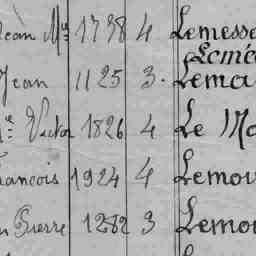 Jean Mie 1738 4 Lemesse
Lemé
Jean 1125 3. Lema
Victor 1826 4 Le Mo
rancois 1924 4 Lemou
Pierre 1282 3 Lemou